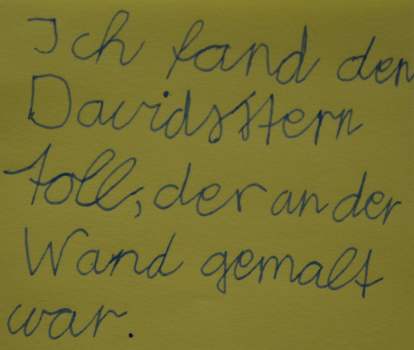 Ich fand den
Davidsstern
toll, der an der
Wand gemalt
war.